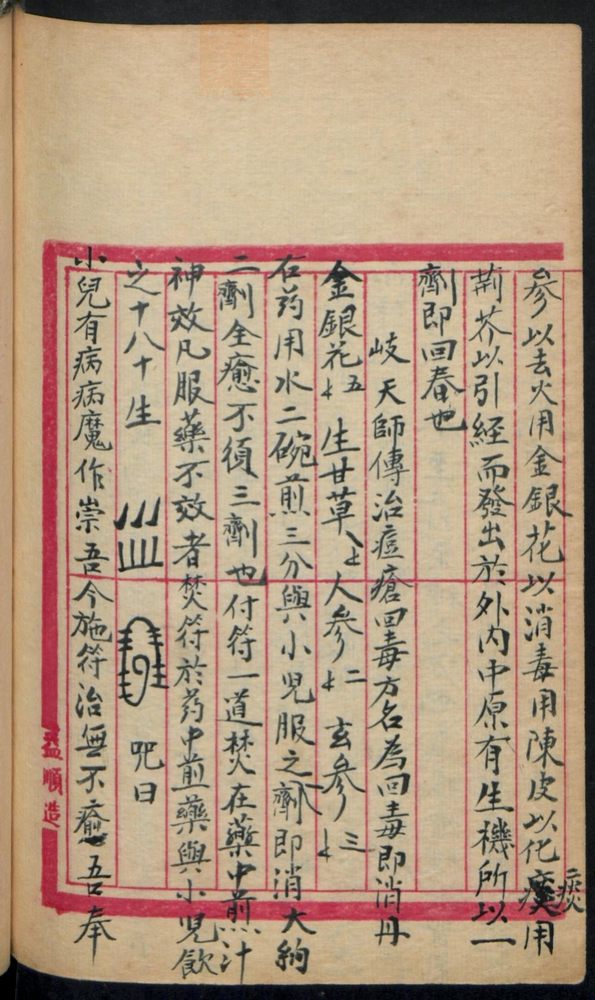 參以去火用金銀花以消毒用陳皮以化痰用
荊芥以引經而發出於外內中原有生機所以一
劑即回春也
岐天師傳治痘瘡回毒方名為回毒即消丹
金銀花五 生甘草 人參二 玄參三
右药用水二碗煎三分與小児服之一劑即消大約
二劑全癒不須三劑也付符一道焚在藥中煎汁
神效凡服藥不效者焚符於药中煎藥與小児飲
之十八十生 咒曰
小兒有病病魔作崇吾今施符治無不癒吾奉
益順造